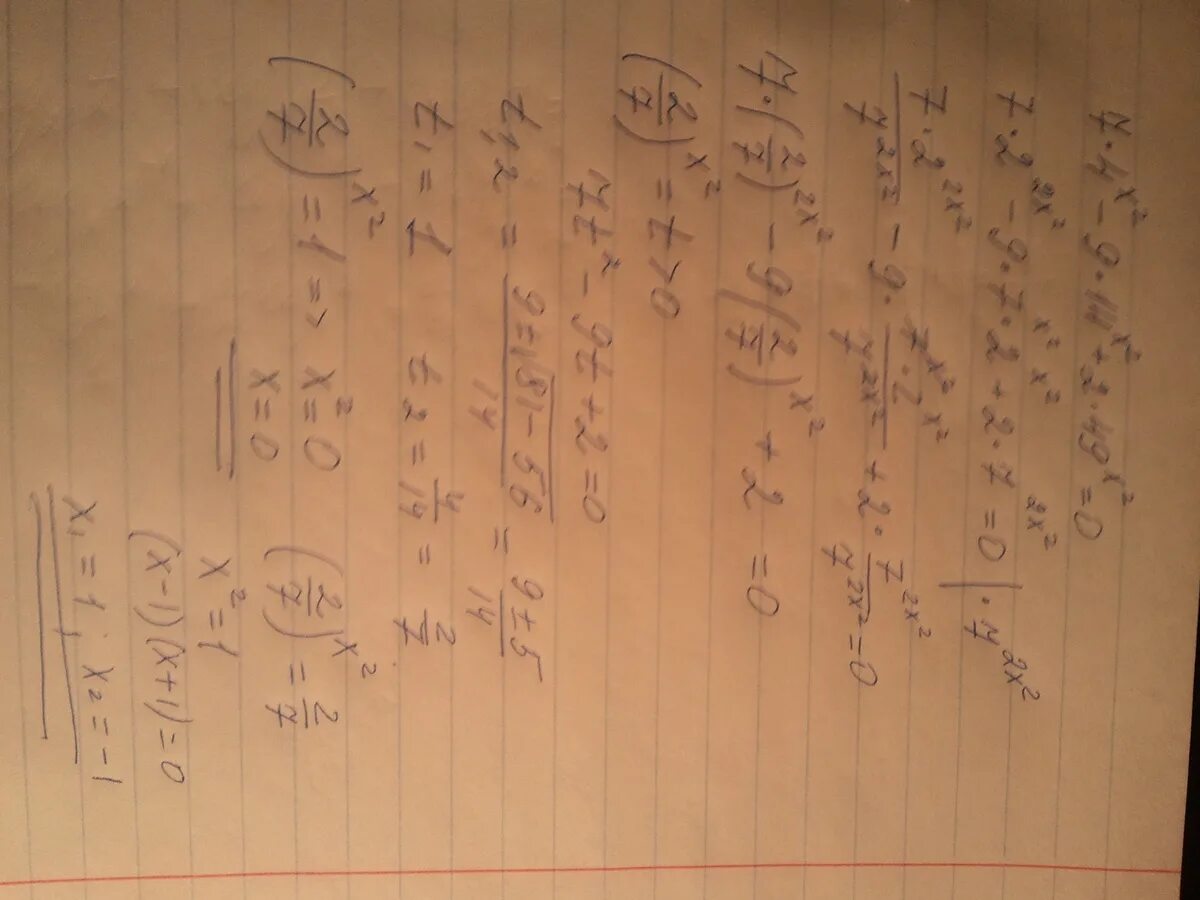 7·4^{x²} − 9·14^{x²} + 2·49^{x²} = 0
7·2^{2x²} − 9·7^{x²}·2^{x²} + 2·7^{2x²} = 0 | · 7^{2x²}
7·2^{2x²}/7^{2x²} − 9·7^{x²}·2^{x²}/7^{2x²} + 2·7^{2x²}/7^{2x²} = 0
7·(2/7)^{2x²} − 9(2/7)^{x²} + 2 = 0
(2/7)^{x²} = t > 0
7t² − 9t + 2 = 0
t₁,₂ = (9 ± √(81 − 56))/14 = (9 ± 5)/14
t₁ = 1 t₂ = 4/14 = 2/7
(2/7)^{x²} = 1 => x² = 0 (2/7)^{x²} = 2/7
x = 0 x² = 1
(x−1)(x+1) = 0
x₁ = 1; x₂ = −1